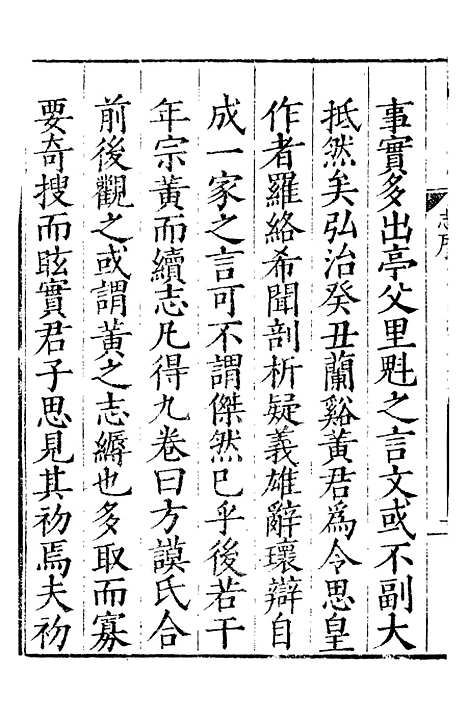 志序
二
事實多出亭父里魁之言文或不副大
抵然矣弘治癸丑蘭谿黃君爲令思皇
作者羅絡希聞剖析疑義雄辭環辯自
成一家之言可不謂傑然已乎後若干
年宗黃而續志凡得九卷曰方謨氏合
前後觀之或謂黃之志縟也多取而寡
要奇搜而眩實君子思見其初焉夫初